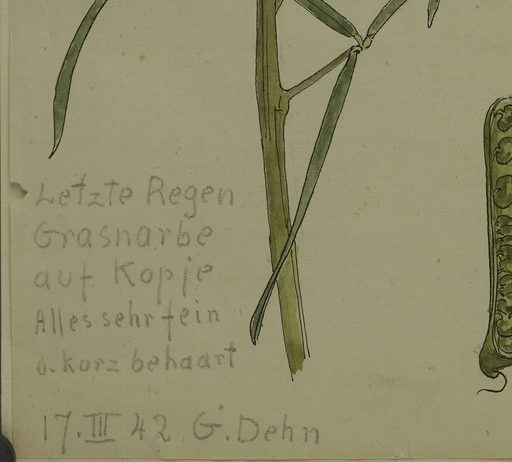 Letzte Regen
Grasnarbe
auf Kopje
Alles sehr fein
u. kurz behaart
17. III 42 G. Dehn